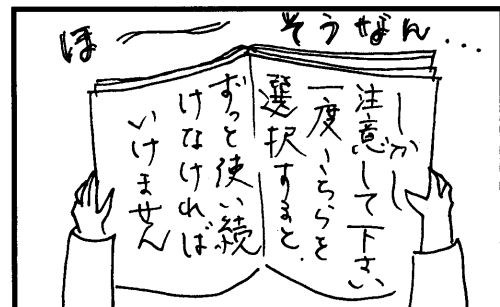 ほ〜〜 そうなん...
しかし
注意して下さい
一度こちらを
選択すると、
ずっと使い続
けなければ
いけません